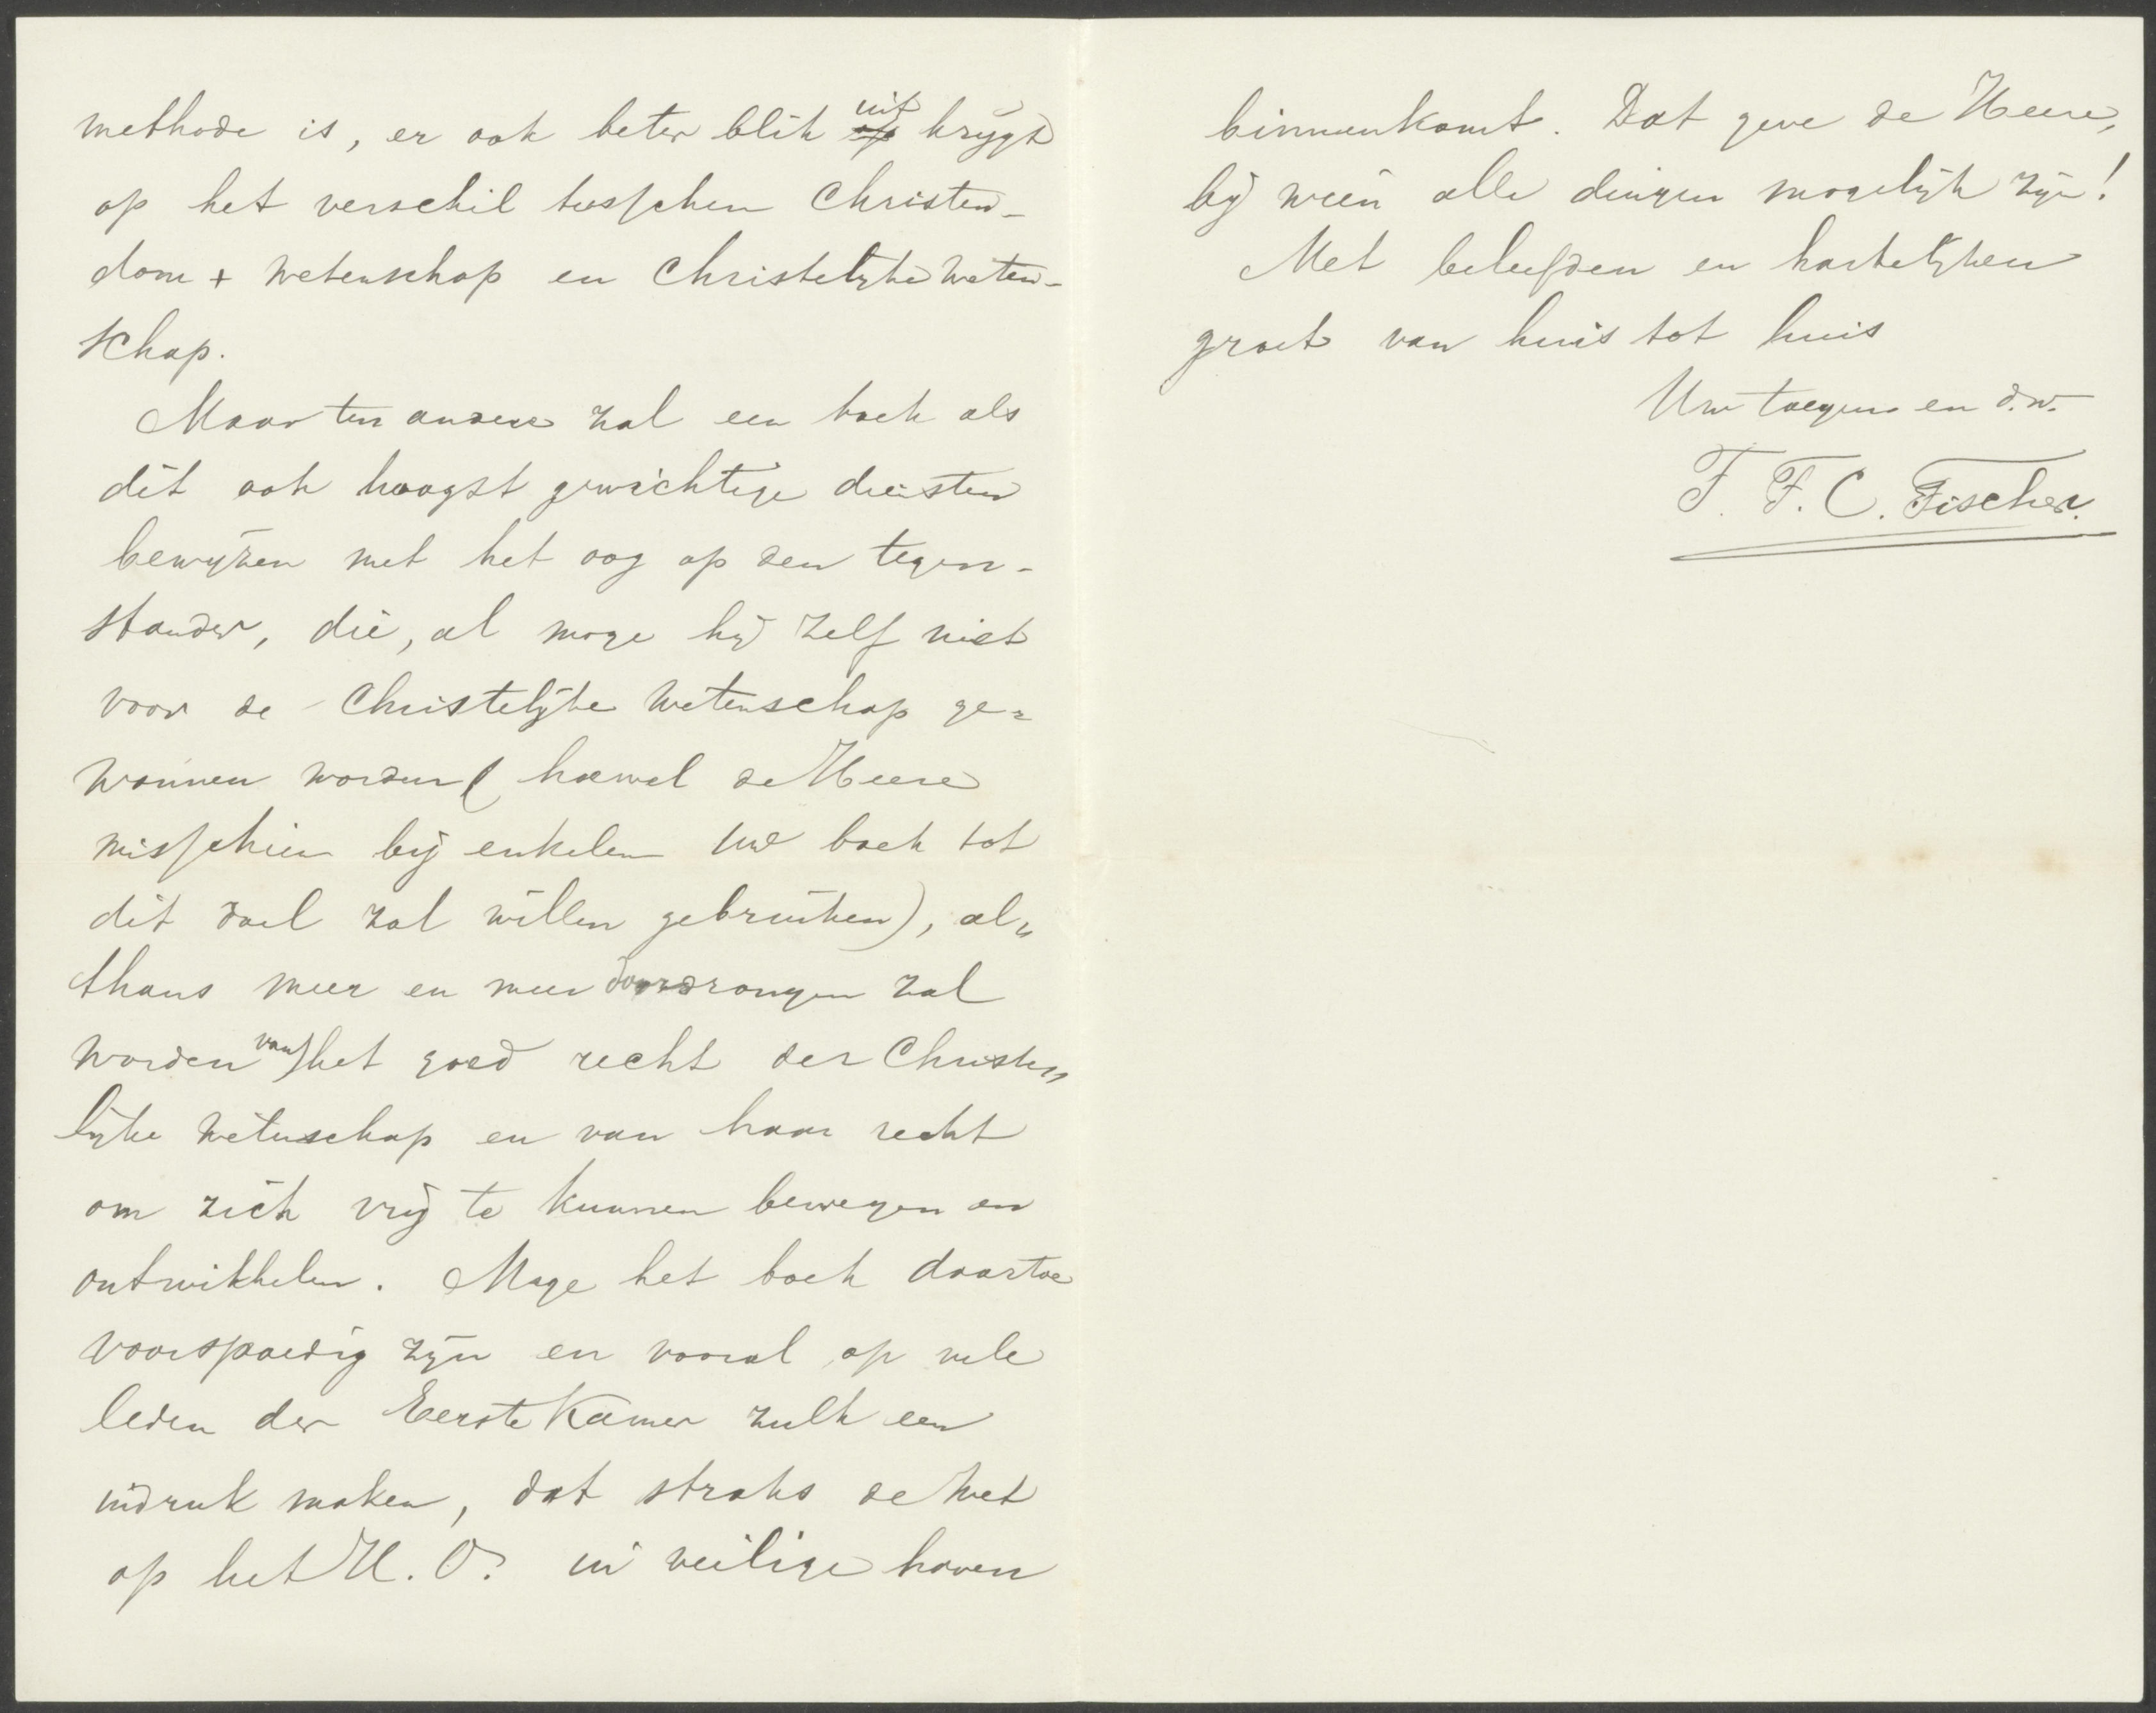 methode is, er ook beter blik uit krijgt
op het verschil tusschen Christen-
dom + wetenschap en Christelijke weten-
schap.
Maar ten andere zal een boek als
dit ook hoogst gewichtige diensten
bewijzen met het oog op den tegen-
stander, die, al moge hij zelf niet
voor de Christelijke wetenschap ge-
wonnen worden (hoewel de Heere
misschien bij enkelen uw boek tot
dit doel zal willen gebruiken), al-
thans meer en meer doordrongen zal
worden van het goed recht der Christe-
lijke wetenschap en van haar recht
om zich vrij te kunnen bewegen en
ontwikkelen. Moge het boek daartoe
voorspoedig zijn en vooral op vele
leden der Eerste Kamer zulk een
indruk maken, dat straks de wet
op het H. O. in veilige haven
binnenkomt. Dat geve de Heere,
bij wien alle dingen mogelijk zijn!
Met beleefden en hartelijken
groet van huis tot huis
Uw toegen. en d.w.
T. F. C. Fischer.